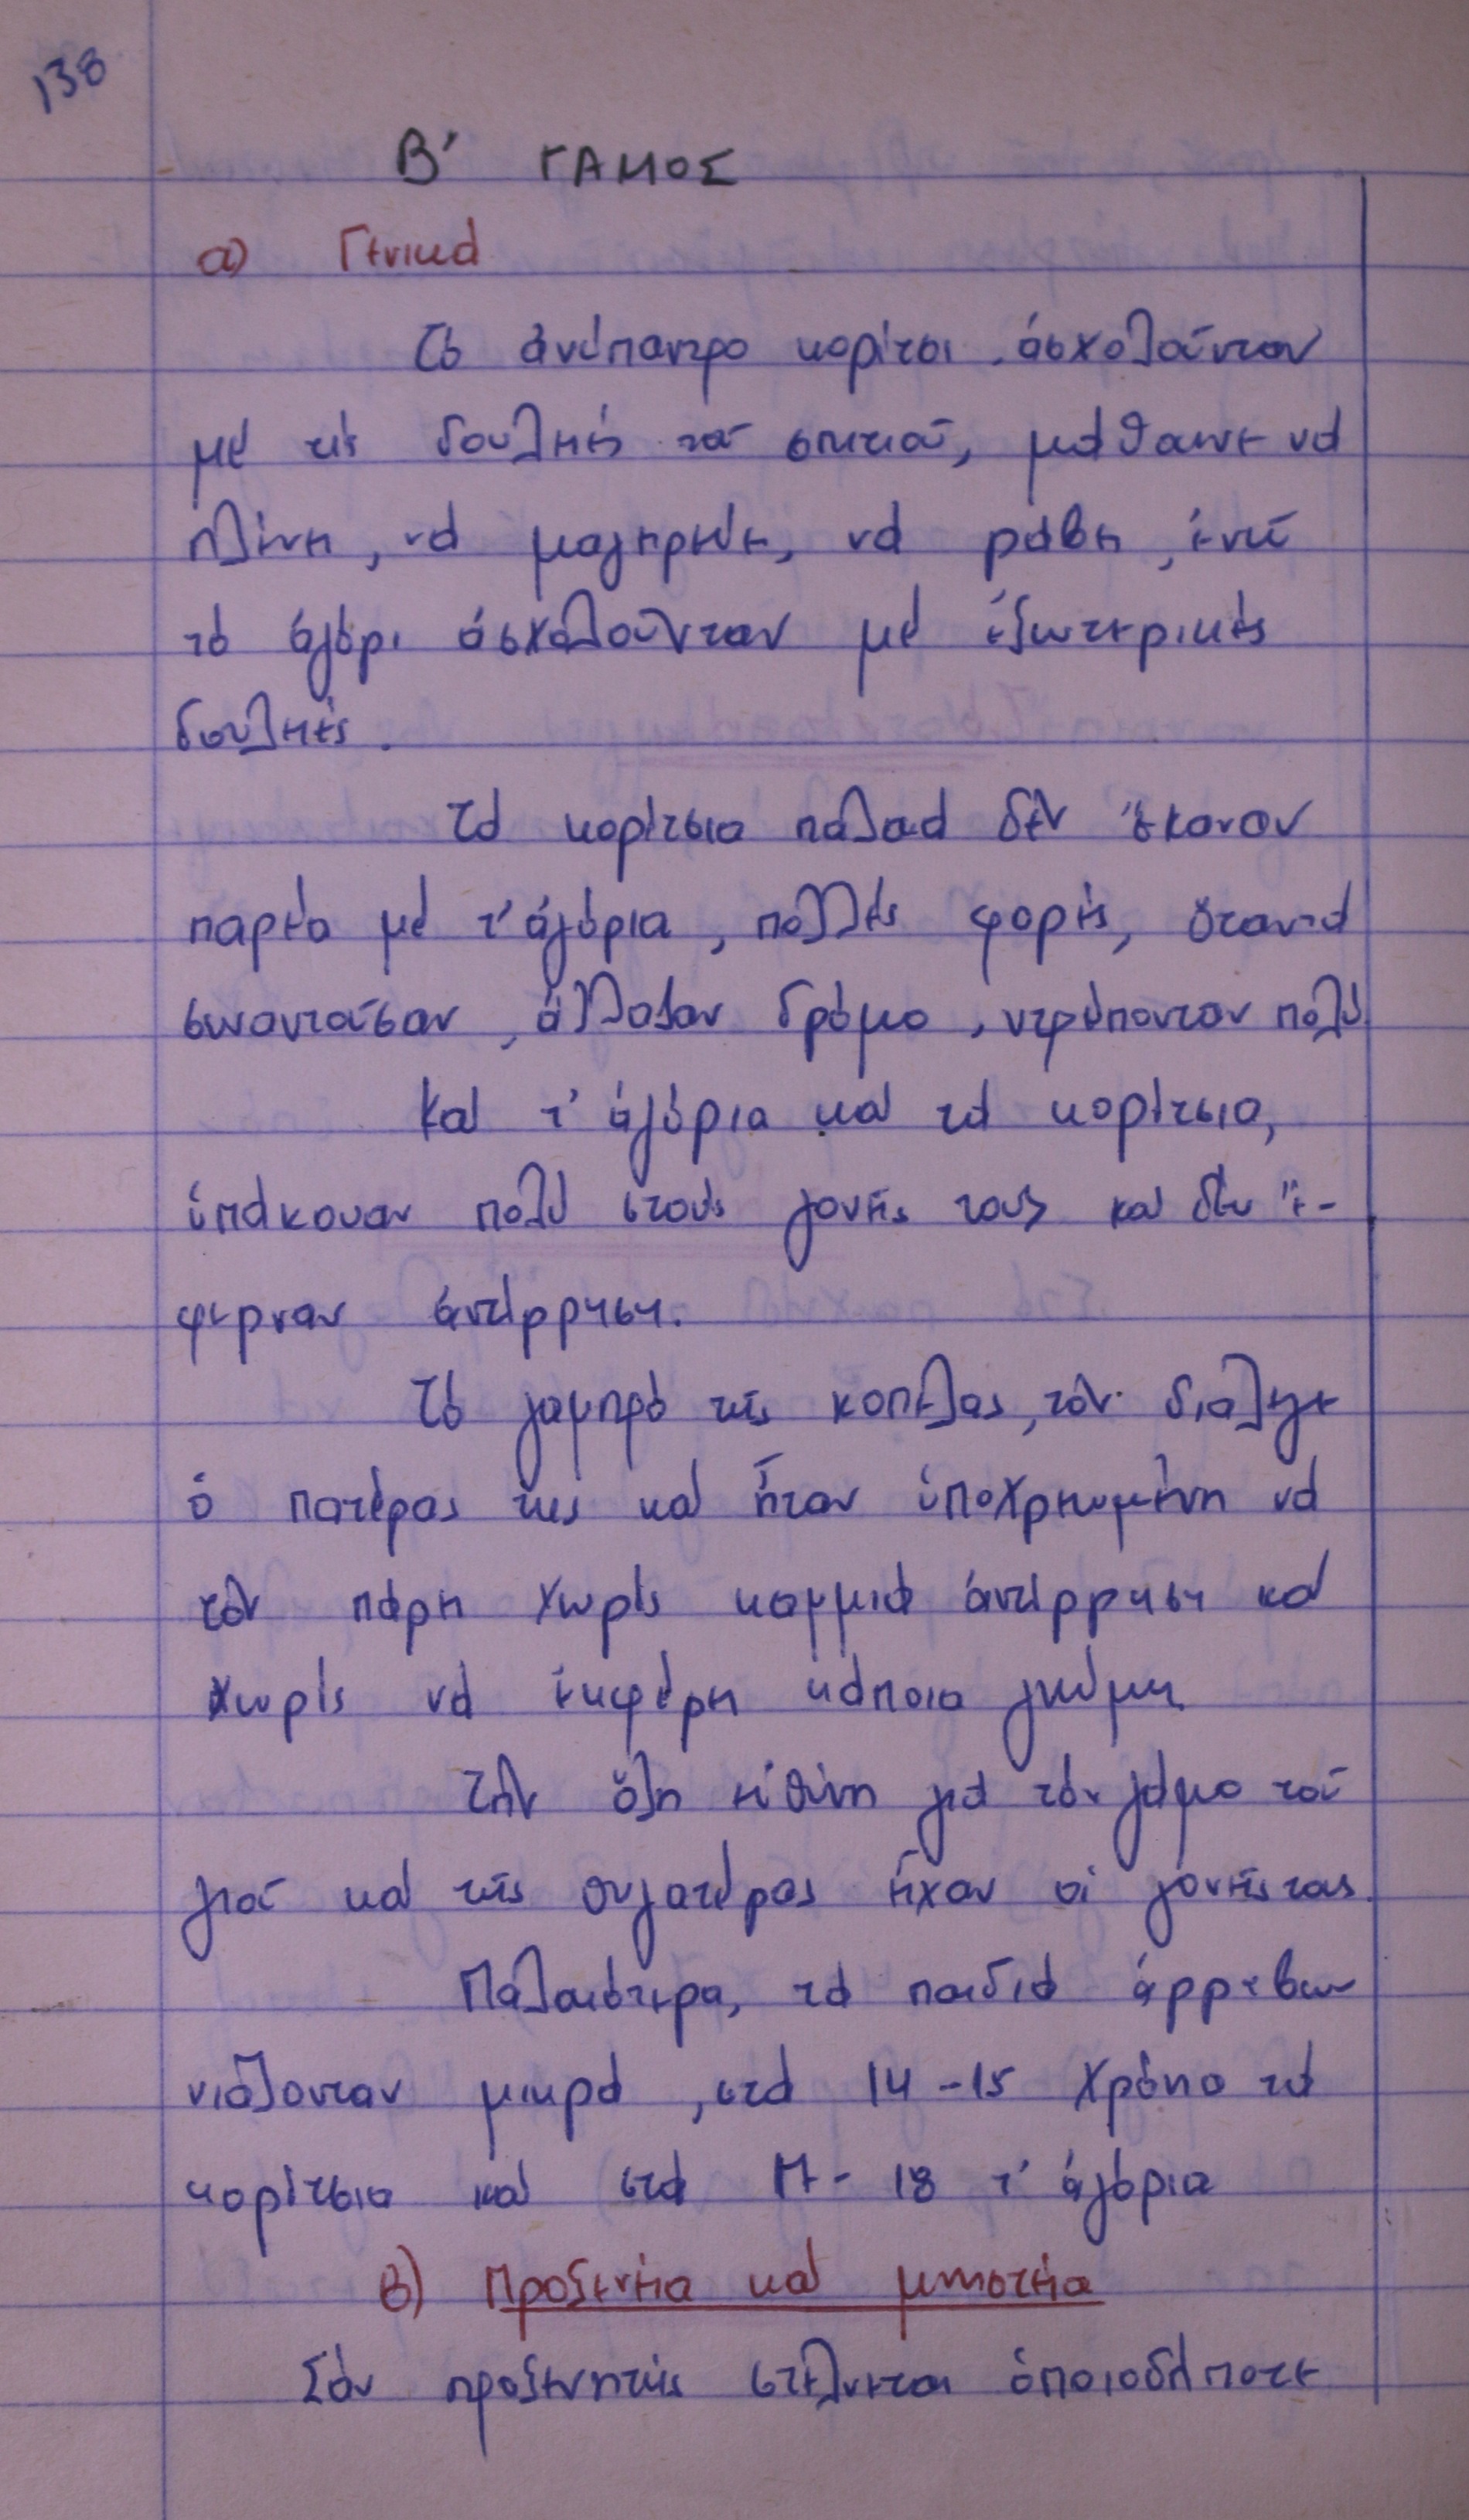 138
Β΄ ΓΑΜΟΣ
α) Γενικά
Τό ἀνύπαντρο κορίτσι, ἀσχολοῦνταν
μέ τίς δουλειές τοῦ σπιτιοῦ, μάθαινε νά
πλένει, νά μαγειρεύει, νά ράβει, ἐνῶ
τό ἀγόρι ἀσχολοῦνταν μέ ἐξωτερικές
δουλειές.
Τά κορίτσια παλαιά δέν ἔκαναν
παρέα μέ τ' ἀγόρια, πολλές φορές, ὅταν τά
συναντοῦσαν, ἄλλαζαν δρόμο, ντρέπονταν πολύ
Καί τ' ἀγόρια καί τά κορίτσια,
ὑπάκουαν πολύ στούς γονεῖς τους καί δέν ἔ-
φερναν ἀντίρρηση.
Τό γαμπρό τῆς κοπέλας, τόν διάλεγε
ὁ πατέρας της καί ἦταν ὑποχρεωμένη νά
τόν πάρει χωρίς καμμιά ἀντίρρηση καί
χωρίς νά ἐκφέρει κάποια γνώμη
Τήν ὅλη εὐθύνη γιά τόν γάμο τοῦ
γιοῦ καί τῆς θυγατέρας εἶχαν οἱ γονεῖς τους.
Παλαιότερα, τά παιδιά ἀρρεβων
νιάζονταν μικρά, στά 14-15 χρόνια τά
κορίτσια καί στά 17-18 τ' ἀγόρια
β) Προξενεία καί μνηστεία
Σάν προξενητής στέλνεται ὁποιοδήποτε